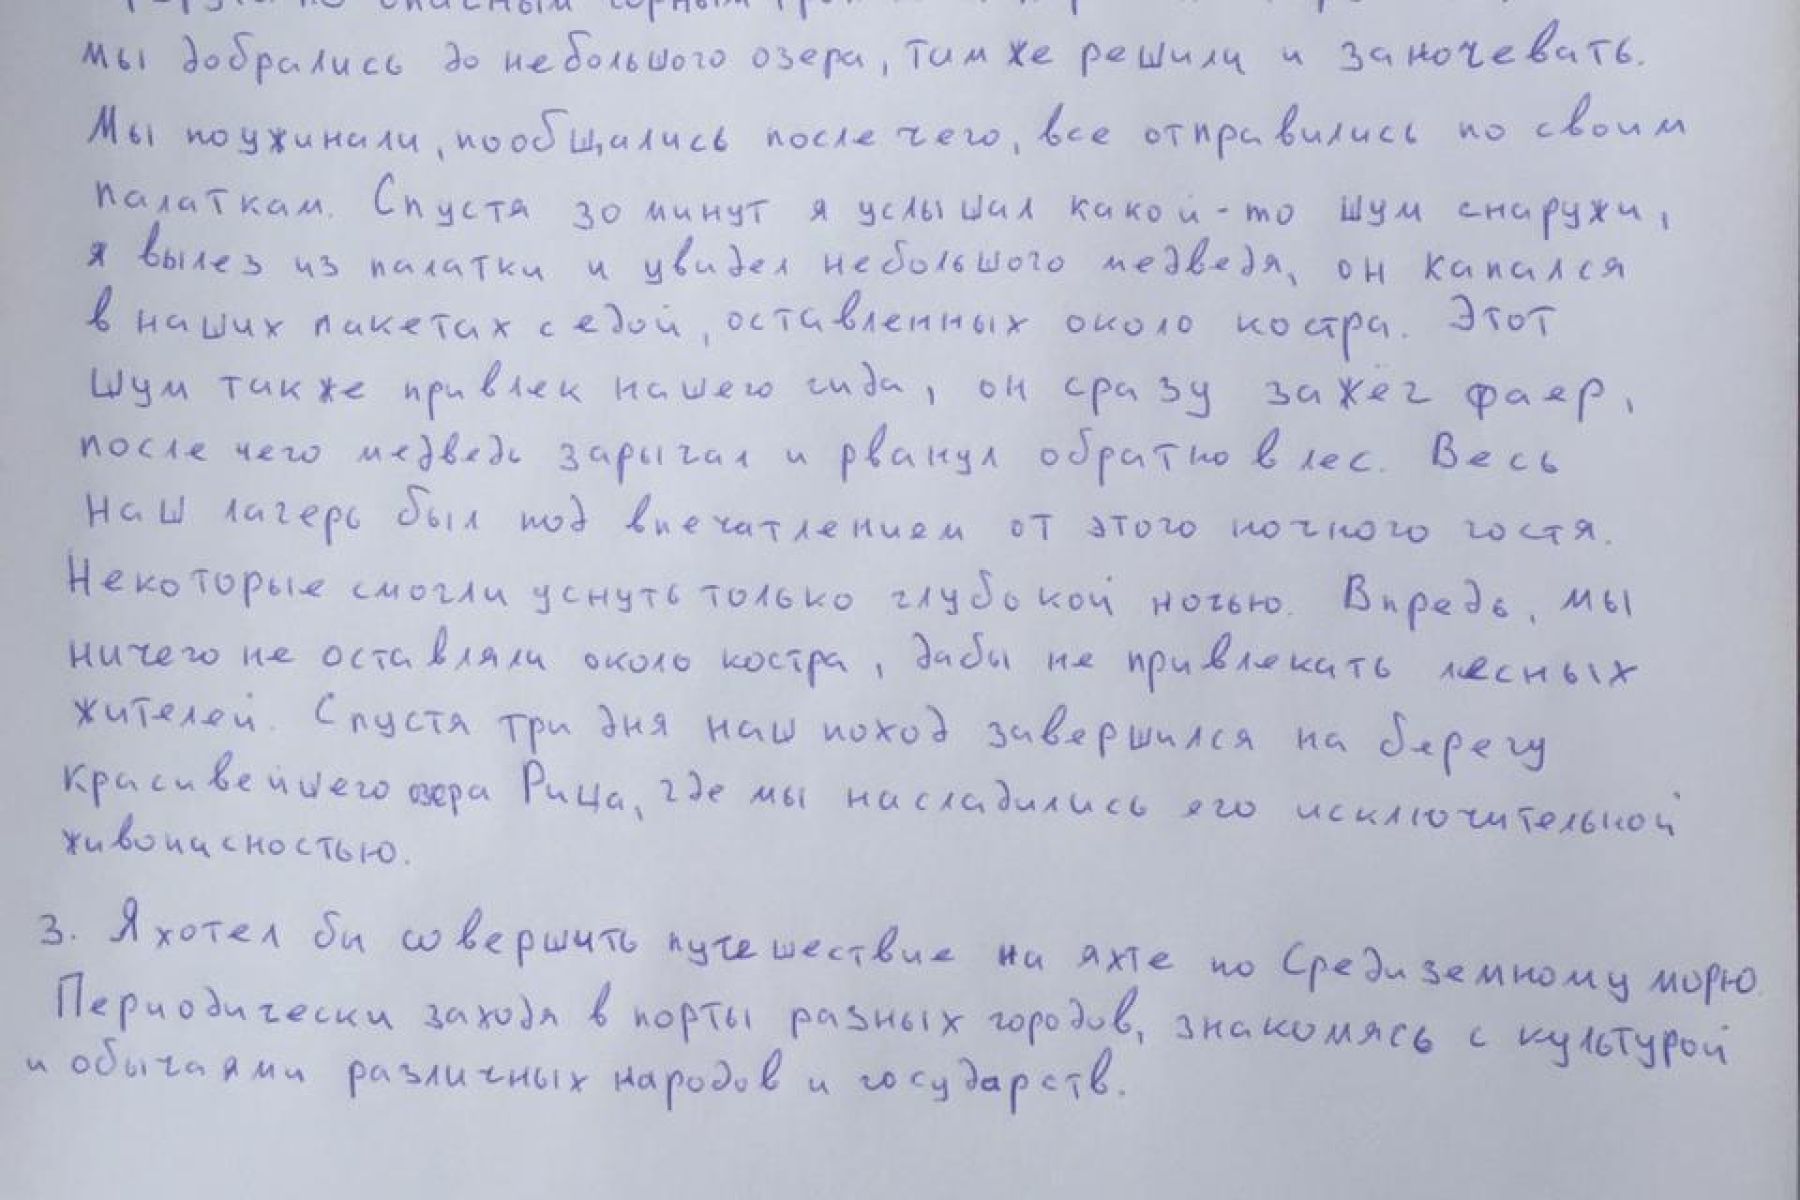 по опасным горным
мы добрались до небольшого озера, там же решили и заночевать.
Мы поужинали, пообщались после чего, все отправились по своим
палаткам. Спустя 30 минут я услышал какой-то шум снаружи,
я вылез из палатки и увидел небольшого медведя, он капался
в наших пакетах с едой, оставленных около костра. Этот
шум также привлек нашего гида, он сразу зажёг фаер,
после чего медведь зарычал и рванул обратно в лес. Весь
наш лагерь был под впечатлением от этого ночного гостя.
Некоторые смогли уснуть только глубокой ночью. Впредь, мы
ничего не оставляли около костра, дабы не привлекать лесных
жителей. Спустя три дня наш поход завершился на берегу
красивейшего озера Рица, где мы насладились его исключительной
живописностью.
3. Я хотел бы совершить путешествие на яхте по Средиземному морю.
Периодически заходя в порты разных городов, знакомясь с культурой
и обычаями различных народов и государств.